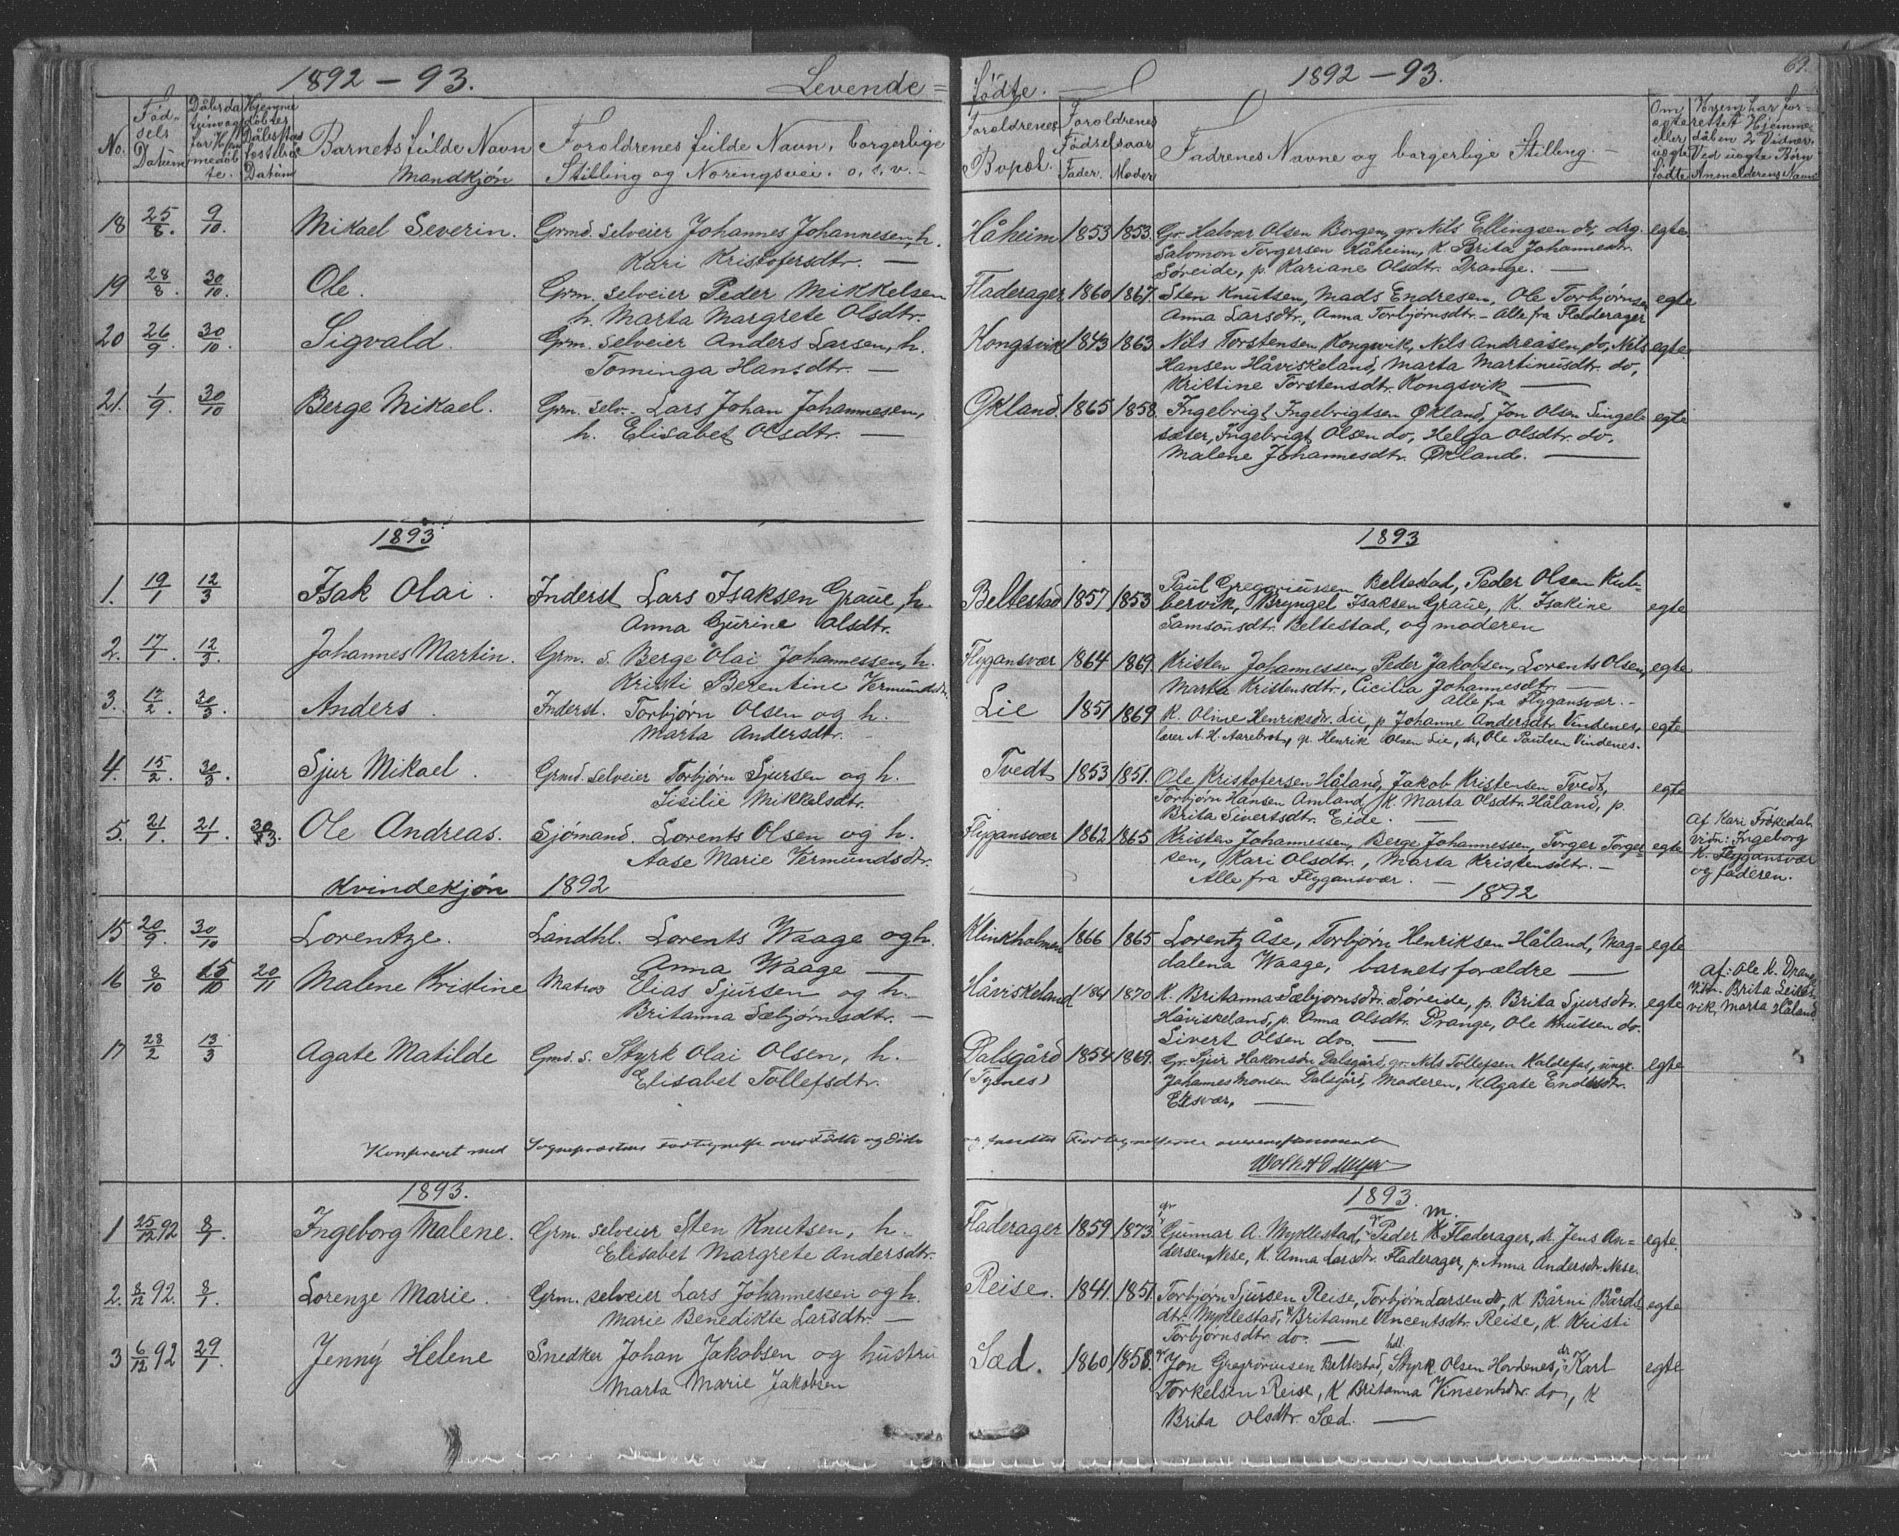 1892 – 93. Levende =
No. Fød- sels Datum Dåbsda Barnets fulde Navn Mandkjøn Foroldrenes fulde Navn, borgerlige Stilling og Noringsvei. o.s.v.
18 25/8. 9/10. Mikael Severin. Grmd. selveier Johannes Johannesen, h.
Kari Kristofersdtr. —
19 28/8. 30/10. Ole. Grm. selveier Peder Mikkelsen
h. Marta Margrete Olsdtr. —
20 26/9. 30/10. Sigvald. Grm. selveier Anders Larsen, h.
Tominga Hansdtr. —
21. 1/9. 30/10 Berge Mikael. Grm. selv. Lars Johan Johannesen,
h. Elisabet Olsdtr. —
1893
1. 19/1 12/3 Isak Olai. Inderst Lars Isaksen Graue, h.
Anna Gjurine Olsdtr.
2. 17/1. 12/3. Johannes Martin. Grm. s. Berge Olai Johannessen, h.
Kristi Berentine Vermundsdtr.
3. 17/2. 30/3. Anders. Inderst. Torbjørn Olsen og h.
Marta Andersdtr.
4. 15/2. 30/3. Sjur Mikael. Grmd. selveier Torbjørn Sjursen og h.
Sisilie Mikkelsdtr.
5. 21/1. 21/1. Ole Andreas. Sjømand. Lorents Olsen og h.
Aase Marie Vermundsdtr.
Kvindekjøn 1892
15 20/9. 30/10 Lorentze. Landhl. Lorents Waage og h.
Anna Waage —
16 8/10 15/10 20/11 Malene Kristine Matros Elias Sjursen og h.
Britanna Sæbjørnsdtr. —
17 28/2 13/3 Agate Matilde Grmd. s. Styrk Olai Olsen, h.
Elisabet Tollefsdtr.
Konfereret med Sognepræstens Fortegnelse over Fødte og Døde
1893.
1 25/12 92 8/1. Ingeborg Malene. Grm. selveier Sten Knutsen, h.
Elisabet Margrete Andersdtr.
2. 8/12 92. 8/1 Lorenze Marie. Grm. selveier Lars Johannessen og h.
Marie Benedikte Larsdtr. —
3 6/12 92 29/1 Jenny Helene Snedker Johan Jakobsen og hustru
Marta Marie Jakobsen
fødte. 1892 – 93. 69.
Foroldrenes Bopæl. Foroldrenes Fødselsaar Fader. Moder Fadrenes Navne og borgerlige Stilling. Om egte eller uegte fødte Hvem har for-
rettet Hjemme-
dåben 2 Vidner.
Ved uegte Børn
Anmelderens Navn
Håheim 1853 1853. Gr. Halvor Olsen Borgen, gr. Nils Ellingsen do, drg. egte
Salomon Torgersen Håheim, K. Brita Johannesdtr.
Søreide, p. Kariane Olsdtr. Drange. —
Fladerager 1860 1867. Sten Knutsen, Mads Endresen, Ole Torbjørnsen egte
Anna Larsdtr., Anna Torbjørnsdtr. – Alle fra Fladerager
Kongsvik 1843 1863. Nils Torstensen Kongsvik, Nils Andreasen do, Nils egte
Hansen Håviskeland, Marta Martinusdtr. do,
Kristine Torstensdtr. Kongsvik —
Økland 1865 1858. Ingebrigt Ingebrigtsen Økland, Jon Olsen Singel- egte
sæter, Ingebrigt Olsen do, Helga Olsdtr. do,
Malene Johannesdtr. Økland. —
1893
Paul Gregoriussen Beltestad, Peder Olsen Kul-
Beltestad 1857 1853. bervik, Bryngel Isaksen Graue, K. Isakine egte
Samsonsdtr. Beltestad, og moderen
Flygansvær 1864 1869. Kristen Johannessen, Peder Jakobsen, Lorents Olsen, egte
Marta Kristensdtr, Cicilia Johannesdtr. —
Alle fra Flygansvær. —
Lie 1851 1869 K. Oline Henriksdtr. Lie, p. Johanne Andersdtr Vindenes, egte
lærer A. H. Aarebrot, gr. Henrik Olsen Lie, dr. Ole Paulsen Vindenes.
Tvedt 1853 1851. Ole Kristofersen Håland, Jakob Kristensen Tvedt, egte
Torbjørn Hansen Amland, K. Marta Olsdtr. Håland, p.
Brita Sivertsdtr. Eide. —
Flygansvær 1862 1865 Kristen Johannessen, Berge Johannessen, Torger Torger- egte
sen, Kari Olsdtr., Marta Kristensdtr. —
Alle fra Flygansvær. —
af Kari Frøkedal
vidn: Ingeborg
K. Flygansvær
og faderen.
1892
Klinkholmen 1866 1865 Lorentz Åse, Torbjørn Henriksen Håland, Mag- egte
dalena Waage, barnets forældre —
Håviskeland 1870 K. Britanna Sæbjørnsdtr. Søreide, p. Brita Sjursdtr. egte
Håviskeland, p. Anna Olsdtr. Drange, Ole Knutsen do.
Sivert Olsen do. —
af: Ole K. Drange
Vidn. Brita
vik, Marta Håland
Dalsgård 1854 1869. Gr. Sjur Hakonsen Dalsgård, gr. Nils Tollefsen Kaldefos, ungk. egte
(Tysnes) Johannes Monsen Dalsgård, Moderen, K Agate Endresdtr.
—
og fundet Fortegnelserne overensstemmende
1893.
Fladerager 1859 1873. Gunnar A. Myklestad, Peder M. Fladerager, dr. Jens An- egte.
dersen Nese, K. Anna Larsdtr. Fladerager, p. Anna Andersdtr. Nese.
Reise. 1841 1851. Torbjørn Sjursen Reise, Torbjørn Larsen do, K Bårni Bårds- egte
dtr. Myklestad, K Britanne Vincentsdtr. Reise, K. Kristi
Torbjørnsdtr. do. —
Sæd. 1860 1858. Jon Gregoriusen Beltestad, Styrk Olsen Hovdenes, dr. Karl egte
Torkelsen Reise, K Britanna Vinsentsdtr. do, K
Brita Olsdtr. Sæd. —